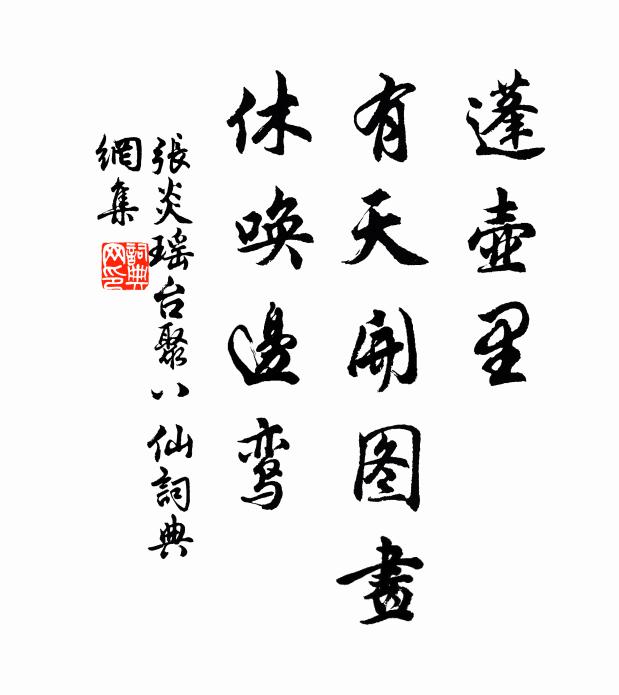 蓬壺里
有天開图畫
休唤邊鸾
張炎瑶台聚八仙詞典
網集
詞典
网印